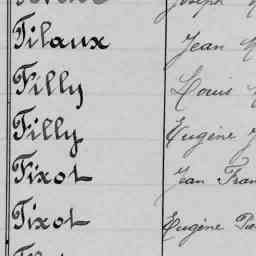 Tilaux Jean
Filly Louis
Filly Eugène
Tixot Jean Fran
Tixot Eugène